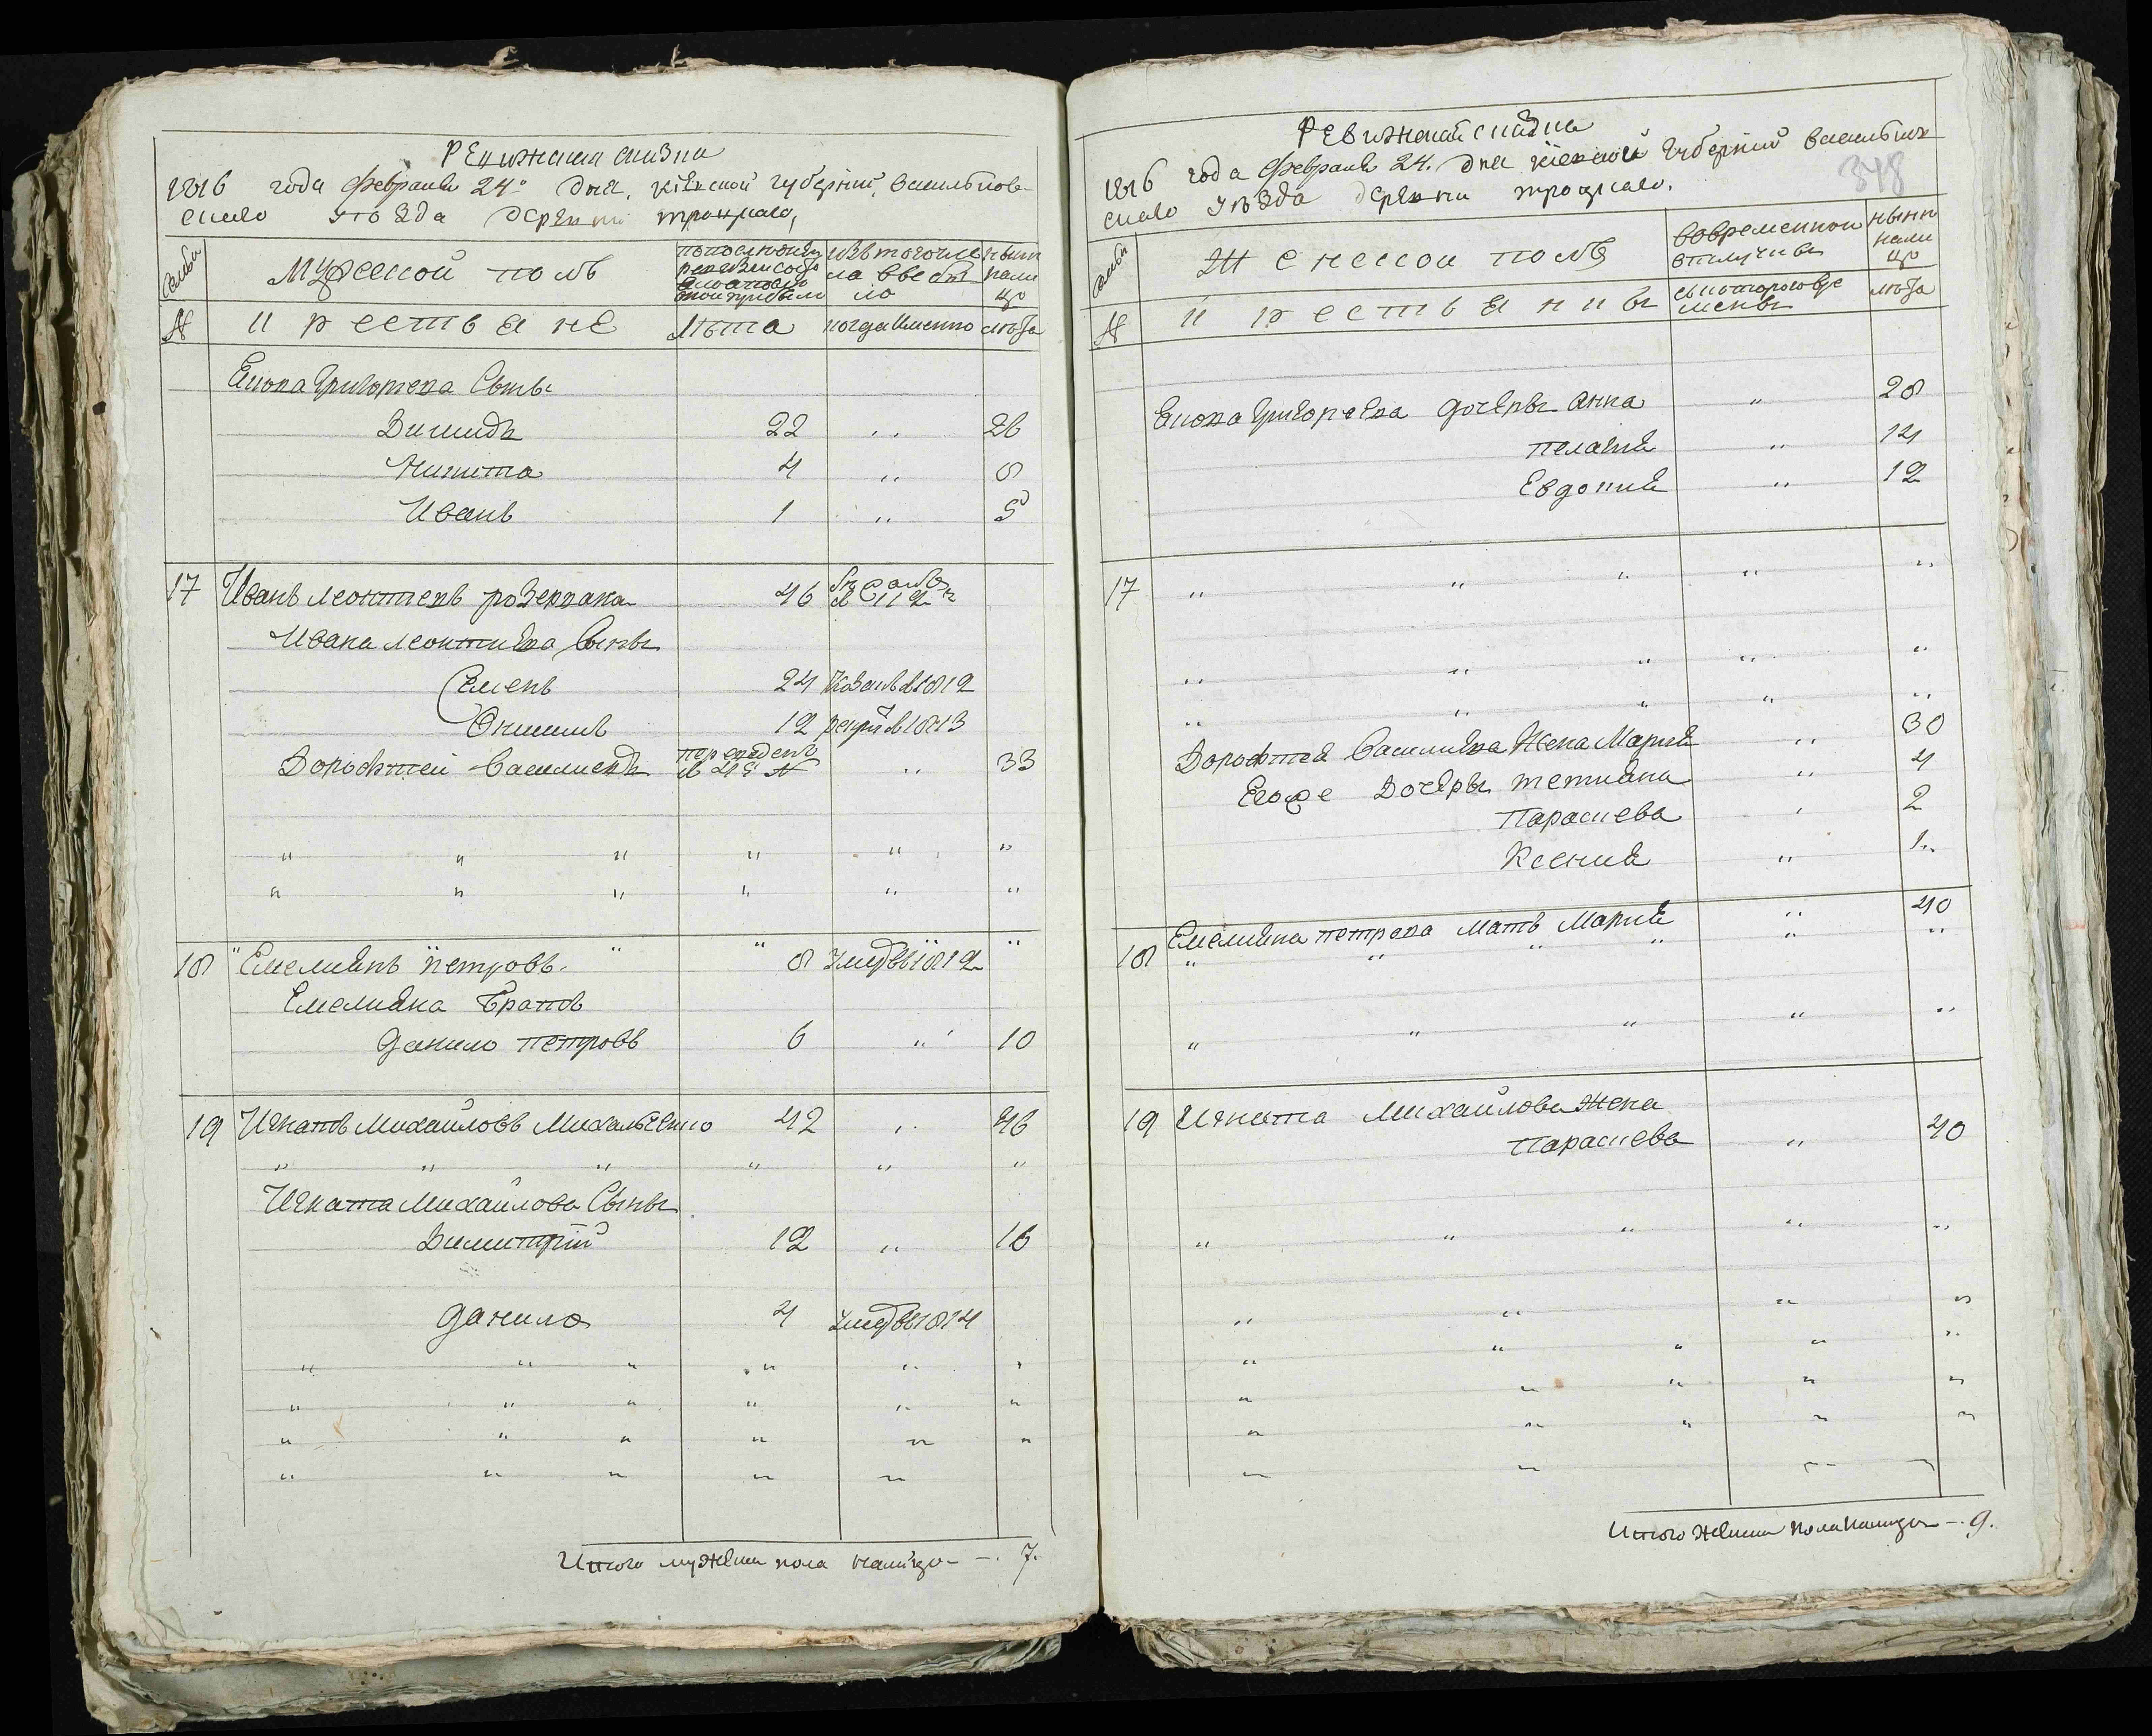 Ревижская сказка
1816 года Февраля 24. Дня, кіевской губерніи, васильков-
скаго уезда деревни троцкаго,
семьи
Мужеской полъ
по последней ревизеи состояло и после оной прибыло
изъ того числа выбыло
ныне на лицо
№
крестьяне
лета
когда именно
лета
Якова Григориева Сыны
Дигмидъ 22 „ 26
Никита 4 „ 8
Иванъ 1 „ 5
17 Иванъ Леонтиевъ 46
Ивана Леонтиева Сыны
Семенъ 24 1812
Онисимъ 12 рекрутъ в 1813
Дорофтей Василиевъ переведенъ „ 33
„ „ „ „ „ „
„ „ „ „ „ „
18 Емелиянъ петровъ 8 умеръ въ 1812
Емелияна братъ
Данило петровъ 6 „ 10
19 Игнатъ Михайловъ Михальченко 42 „ 46
„ „ „ „ „ „
Игната Михайлова Сыны
Димитрій 12 „ 16
Данило 4 умеръ въ 1814
„ „ „ „ „ „
„ „ „ „ „ „
„ „ „ „ „ „
„ „ „ „ „
Итого мужеска пола налицо — 7.
Ревижская сказка
348
1816 года Февраля 24. Дня кіевской Губерніи васильков
скаго уезда деревни троцкаго.
семьи
Женской полъ
во временной отлучке
ныне нали цо
№
крестьянки
съ котораго времени
лета
Якова Григориева дочеры Анна „ 28
пелагия „ 14
Евдокия „ 12
17 „ „ „ „ „
„ „ „ „ „
„ „ „ „ „
Дорофтея Василиева Жена Мария „ 30
Егоже Дочеры тетияна „ 4
Параскева „ 2
Ксения „ 1
18 Емелияна петрова мать Мария „ 40
„ „ „ „ „ „
„ „ „ „ „
19 Игната Михайлова Жена
Параскева „ 40
„ „ „ „ „
„ „ „ „
„ „ „ „ „
„ „ „ „ „
„ „ „ „ „
„ „ „ „
Итого женска пола налицо — 9.